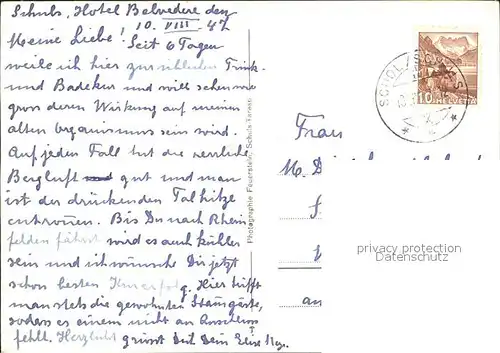 Schuls, Hotel Belvedere den
10. VIII 47
Meine Liebe! Seit 6 Tagen
weile ich hier zur üblichen Trink-
und Badekur und will sehen wie
gross deren Wirkung auf meinen
alten Organismus sein wird.
Auf jeden Fall tut die herrliche
Bergluft gut und man
ist der drückenden Talhitze
entronnen. Bis Du nach Rhein-
felden fährst wird es auch kühler
sein und ich wünsche Dir jetzt
schon besten Kurerfolg. Hier trifft
man stets die gewohnten Stammgäste,
sodass es einem nicht an Anschluss
fehlt. Herzlichst grüsst Dich Dein
Photographie Feuerstein, Schuls Tarasp
SCHULS
10 HELVETIA
Frau
M. D
an
privacy protection
Datenschutz